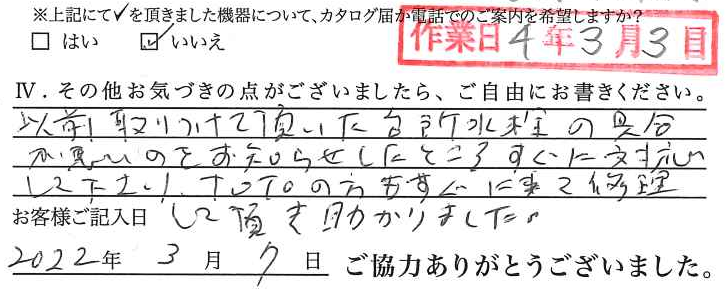 ※上記にて✓を頂きました機器について、カタログ届か電話でのご案内を希望しますか?
□ はい ☑ いいえ
作業日 4年3月3日
Ⅳ．その他お気づきの点がございましたら、ご自由にお書きください。
以前取りつけて頂いた台所水栓の具合
が悪いのをお知らせしたところすぐに対応
して下さり、TOTOの方もすぐに来て修理
して頂き助かりました。
お客様ご記入日
2022年 3月 7日 ご協力ありがとうございました。